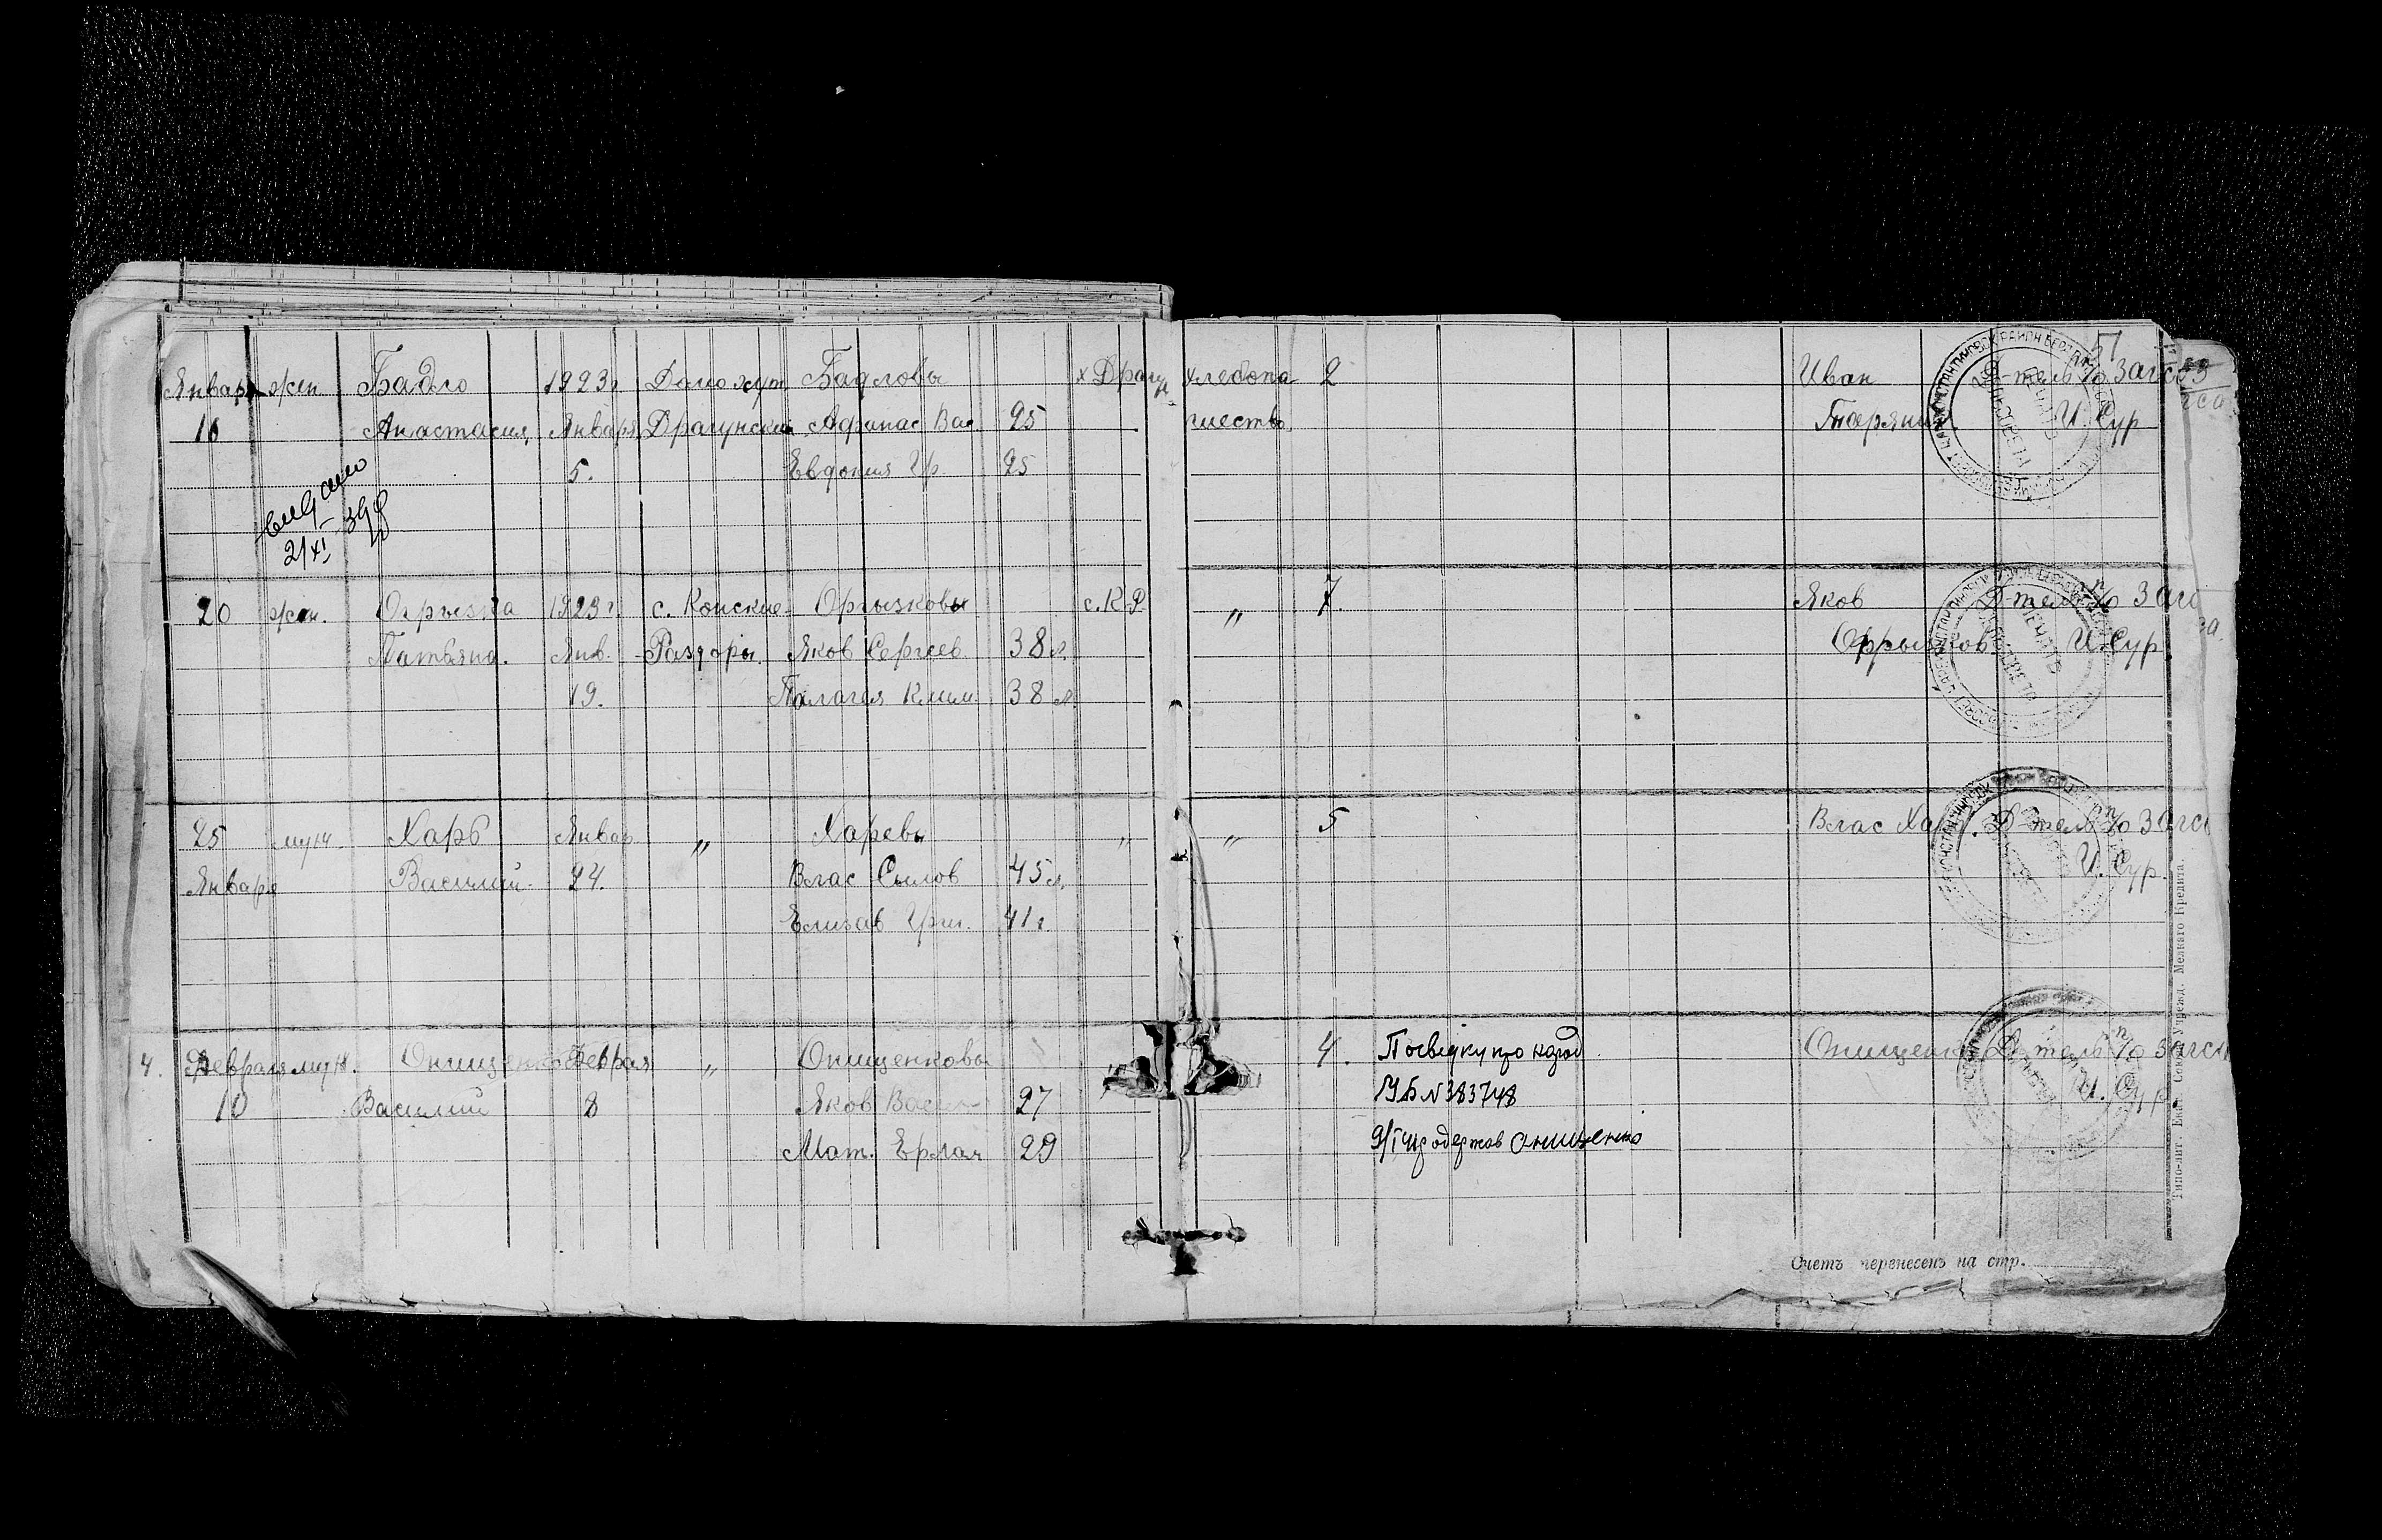 Январь жен Бадло 1923 г Дано хут. Бадловы х Драгун хлебопа 2 Иван Д-тель п/о Загса
10 Анастасия Января Драгунский Афанас Вас 25 шество И. Сур
5. Евдокия Гр. 25
видано
21/XI 39
20 жен. Огрызка 1923 г. с. Конские Огрызковы с. К. Р. „ 7. Яков Д-тель п/о Заг
Татьяна. Янв. Раздоры. Яков Сергеев. 38 л. Огрызков И. Сур
19. Палагея Клим. 38 л
25 муж. Харь Январ „ Харевы „ „ 5 Влас Хар Д-тель п/о Загс
Января Василий 24. Влас Сылов 45 л. И. Сур.
Елизав Григ. 41 г.
4. Февраля муж. Онищенко Февраля „ Онищенковы 4. Посвідку про народ. Онищенко Д-тель п/о Загса
10 Василий 8 Яков Васил 27 УБ № 383748 И. Сур.
Мат. 29 одержав Онищенко
Счетъ перенесенъ на стр.
Типо-лит. Екат. Союза Учрежд. Мелкаго Кредита.